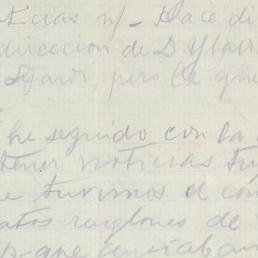 ticias n/- Hace di
dirección de D. Ybarr
pero la que
he seguido con la
tener noticias tu
e tuvimos el con
atos renglones de
p. que ansiaban